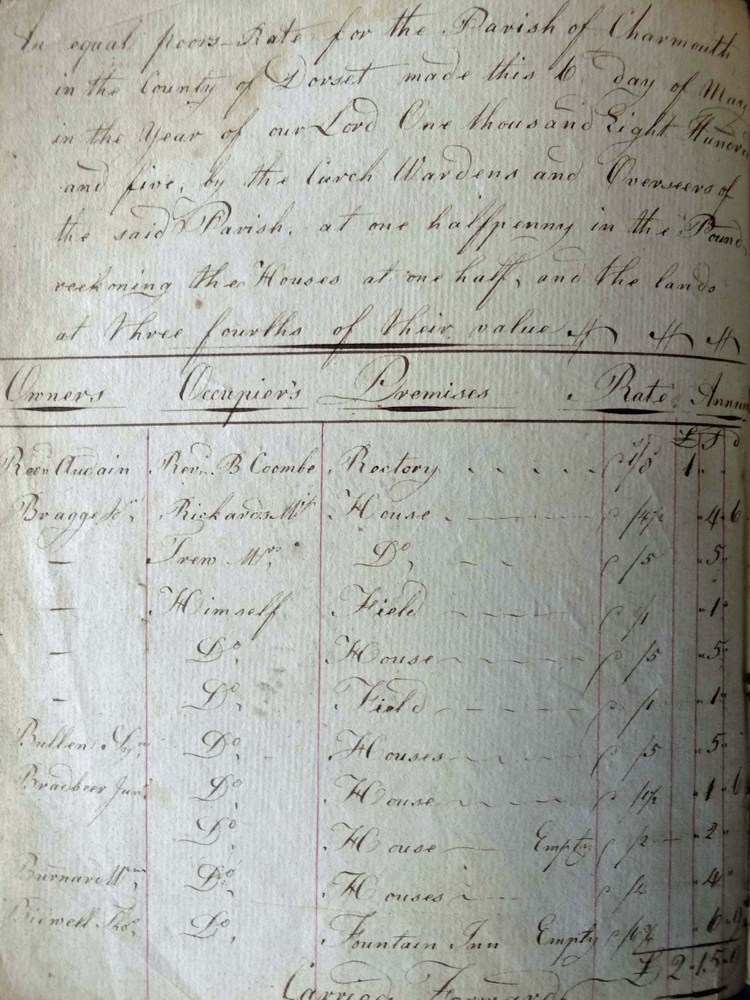 An equal poors-Rate for the Parish of Charmouth
in the County of Dorset made this 6 day of May
in the Year of our Lord One thousand Eight Hundred
and five, by the Curch Wardens and Overseers of
the said Parish, at one halfpenny in the Pound
reckoning the Houses at one half, and the lands
at three fourths of their value
Owners Occupier's Premises Rate Annu
£ S d
Revn Audain Rev. B Coombe Rectory 1/8 1
Bragge Rickards House /4½ 4 6
— Trew Mrs Do /5 5
— Himself Field /1 1
— Do House /5 5
— Do Field /1 1
Bullen Do Houses /5 5
Bradbeer Junr Do House /1½ 1 6
Do House Empty /2 2
Burnard Wm Do Houses /4 4
Bidwell Thos Do Fountain Inn Empty /6¾ 6 9
Carried Forward £ 2 15